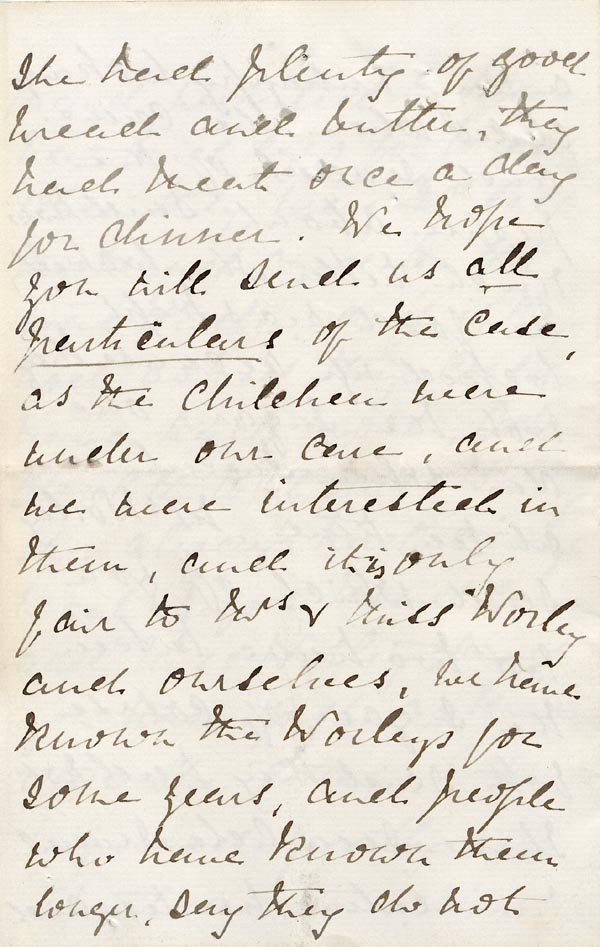 She had plenty of good
bread and butter, they
had meat once a day
for dinner. We hope
you will send us all
particulars of the case,
as the children were
under our care, and
we were interested in
them, and it is only
fair to Mrs & Miss Worley
and ourselves, we have
known the Worleys for
some years, and people
who have known them
longer, say they do not